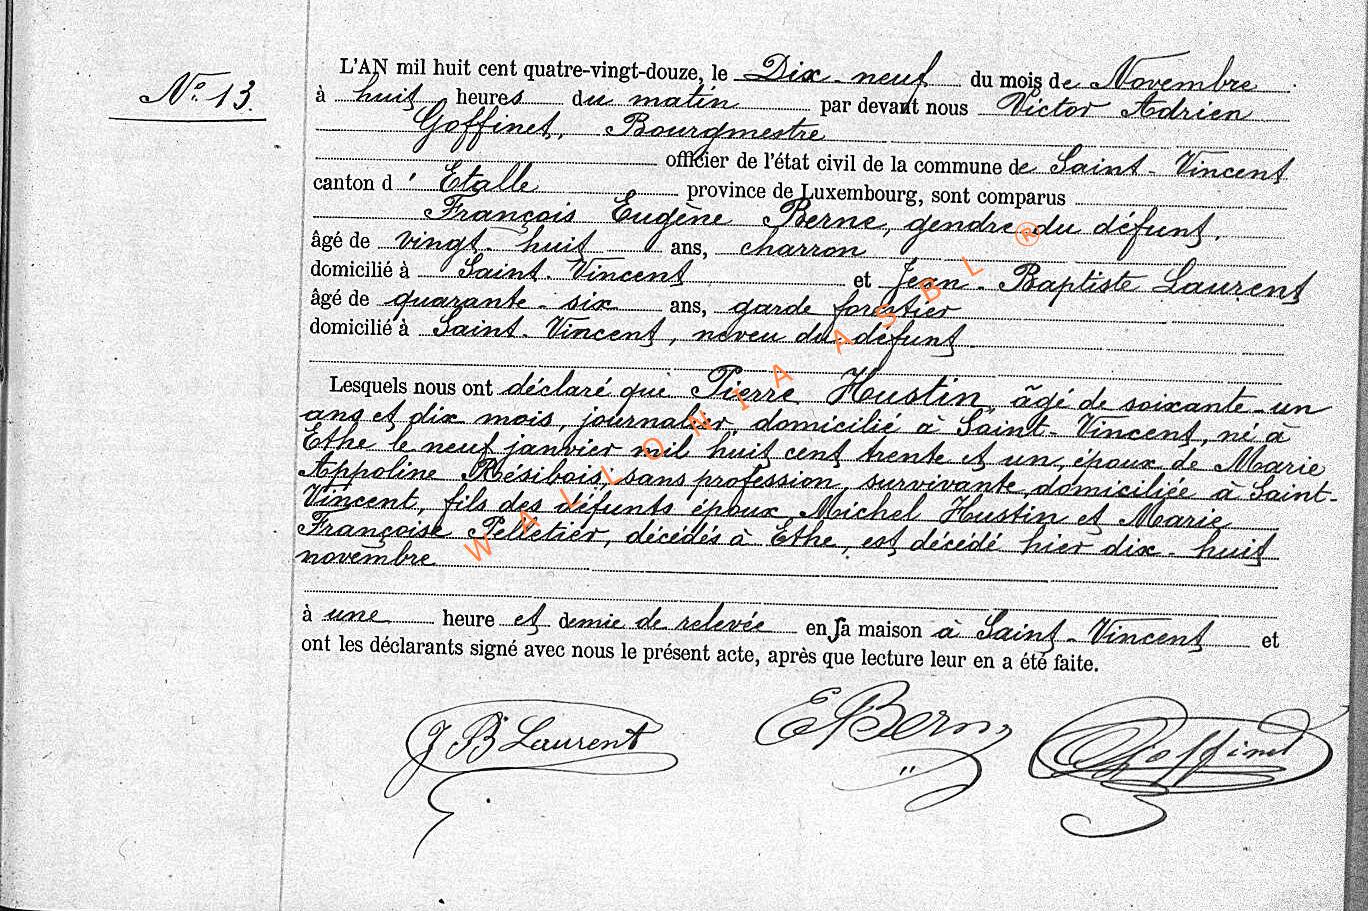 N° 13.
L'AN mil huit cent quatre-vingt-douze, le Dix-neuf du mois de Novembre
à huit heures du matin par devant nous Victor Adrien
Goffinet, Bourgmestre
officier de l'état civil de la commune de Saint-Vincent
canton d'Etalle province de Luxembourg, sont comparus
François Eugène Berne, gendre du défunt,
âgé de vingt-huit ans, charron
domicilié à Saint-Vincent et Jean-Baptiste Laurent
âgé de quarante-six ans, garde forestier
domicilié à Saint-Vincent, neveu du défunt.
Lesquels nous ont déclaré que Pierre Hustin, âgé de soixante-un
ans et dix mois, journalier, domicilié à Saint-Vincent, né à
Ethe le neuf janvier mil huit cent trente et un, époux de Marie
Appoline Résibois, sans profession, survivante, domiciliée à Saint-
Vincent, fils des défunts époux Michel Hustin et Marie
Françoise Pelletier, décédés à Ethe, est décédé hier dix-huit
novembre
à une heure et demie de relevée en sa maison à Saint-Vincent et
ont les déclarants signé avec nous le présent acte, après que lecture leur en a été faite.
J B Laurent E Berne Goffinet
WALLONIA ASBL ®